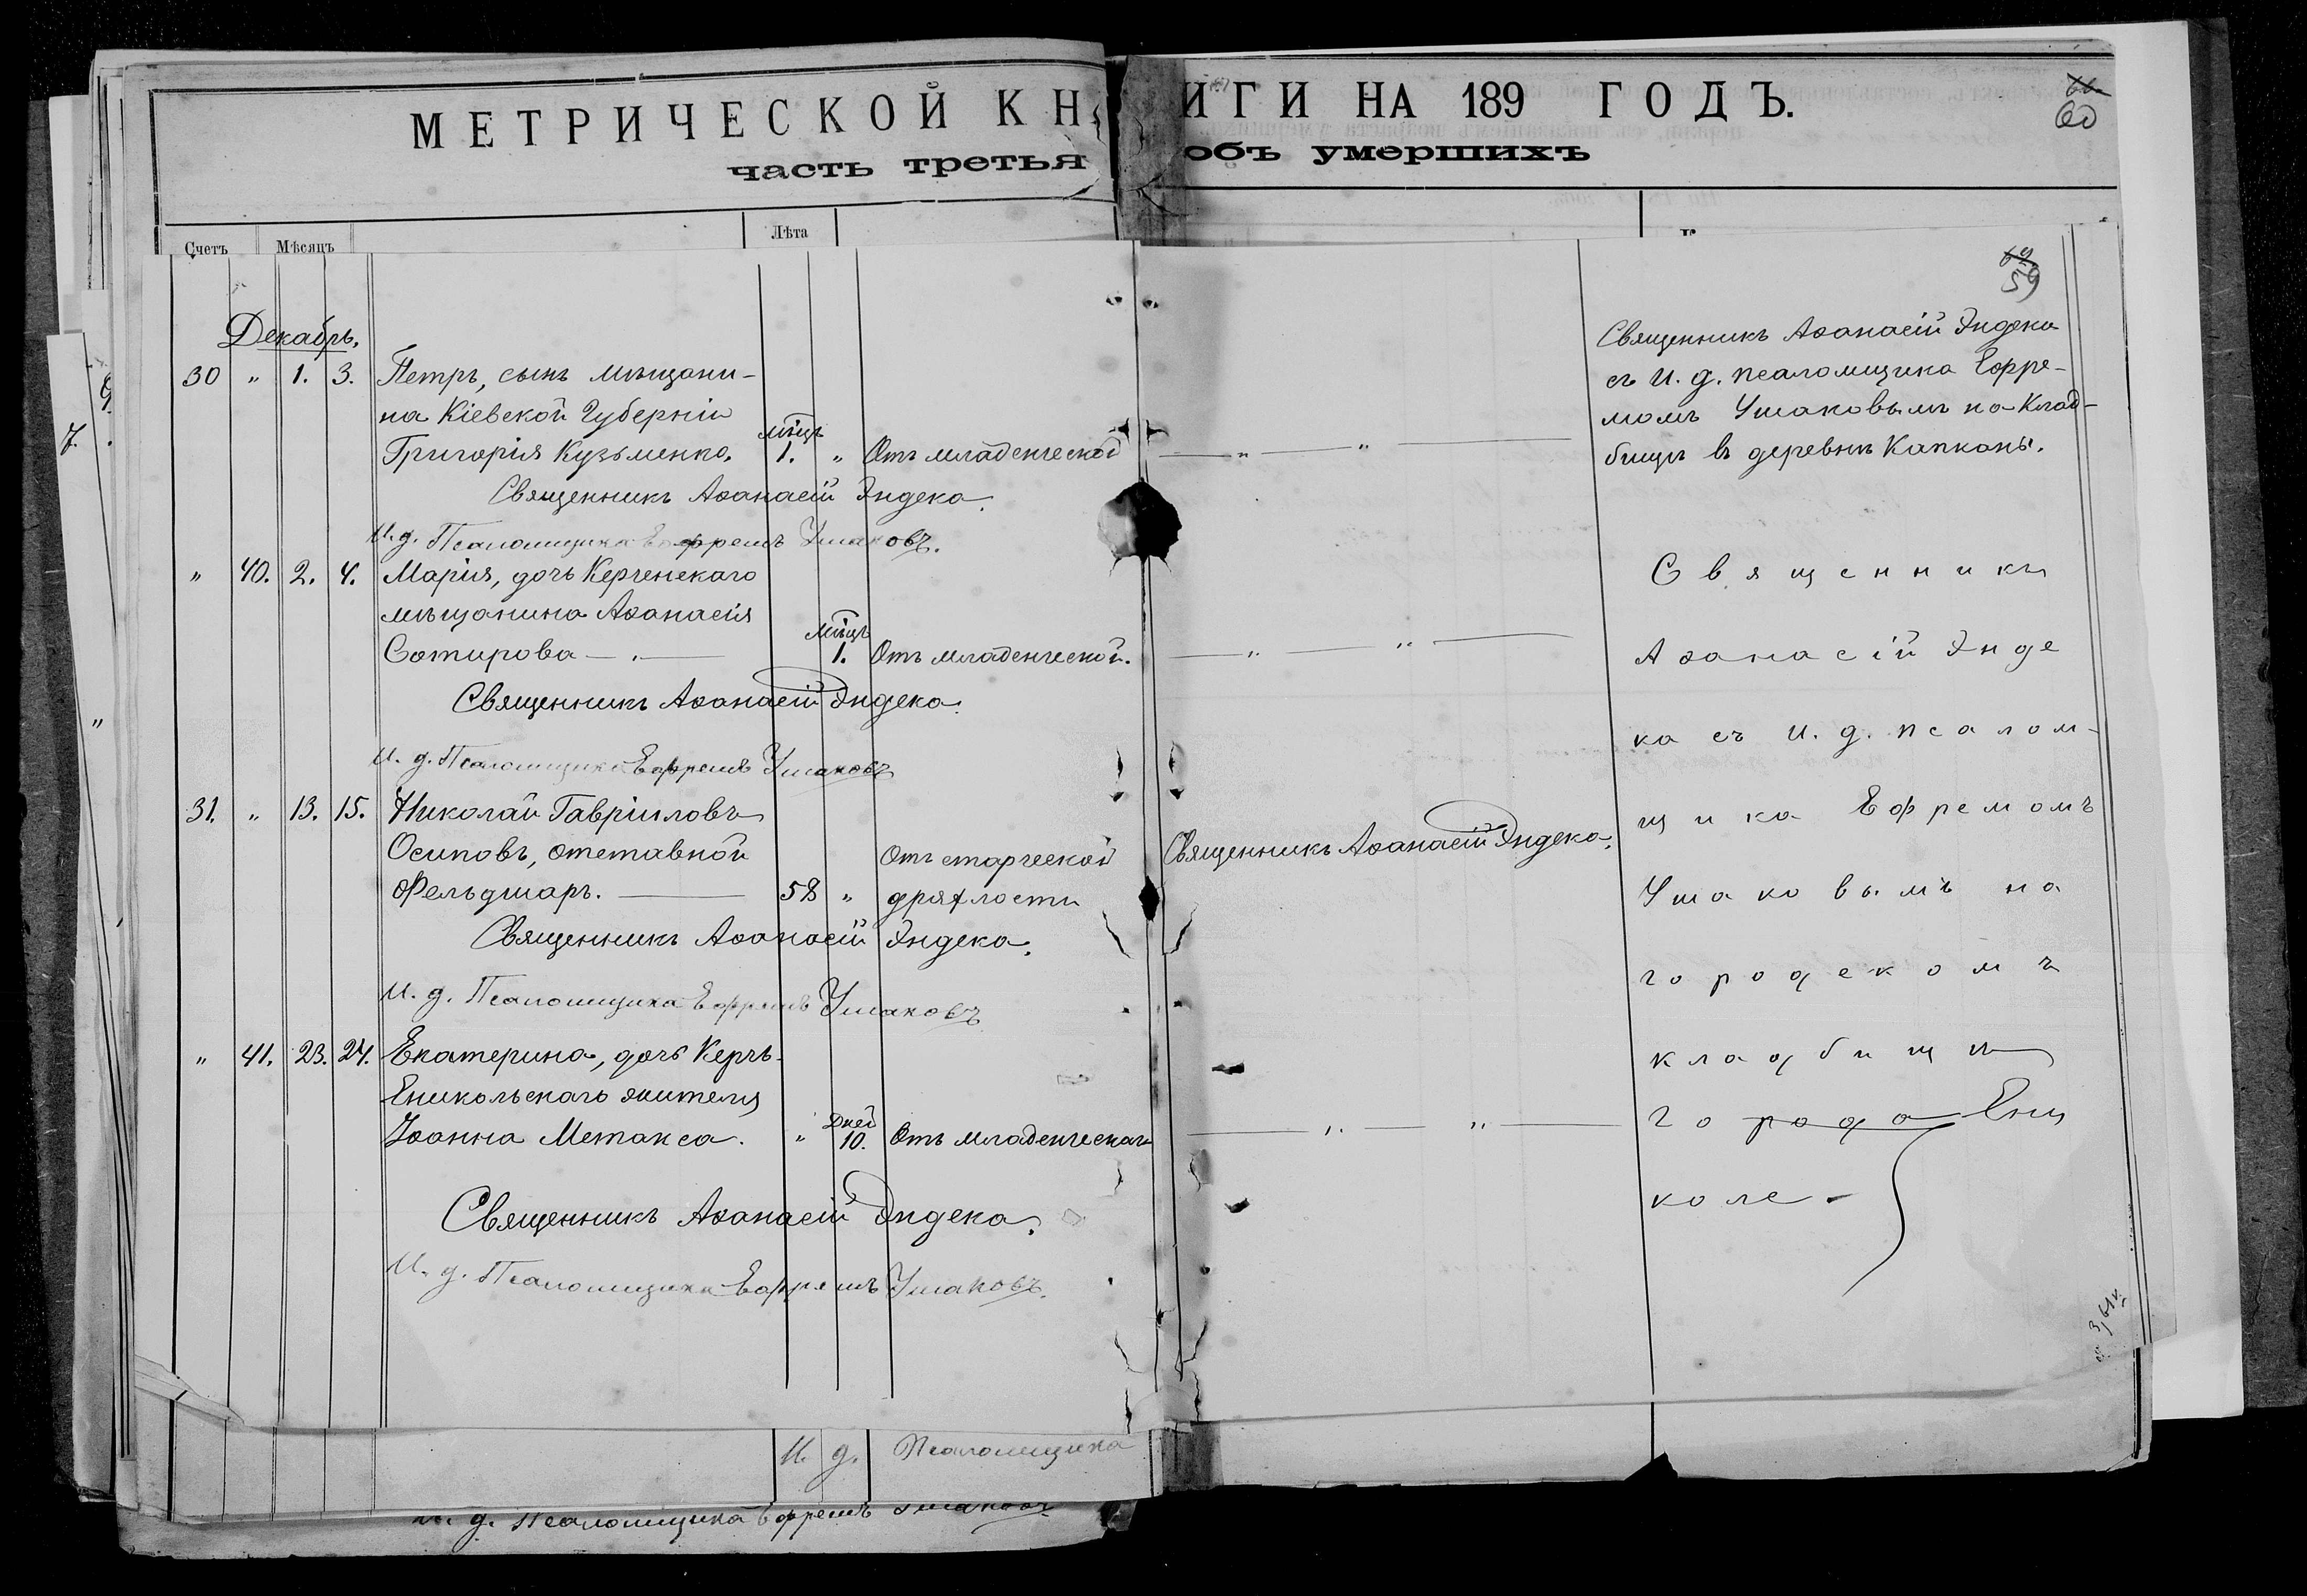 МЕТРИЧЕСКОЙ КНИГИ НА 189 ГОДЪ.
часть третья объ умершихъ
60
Счетъ Мѣсяцъ Лѣта
59
Декабрь.
30 " 1. 3. Петръ, сынъ мѣщани-
на Кіевской Губерніи
Григорія Кузьменко. мѣсцъ 1. " Отъ младенческой
Священникъ Аѳанасій Эндека.
И. д. Псаломщика Ефремъ Ушаковъ.
" 40. 2. 4. Марія, дочь Керченскаго
мѣщанина Аѳанасія
Сотирова мѣсцъ 1. Отъ младенческой.
Священникъ Аѳанасій Эндека.
И. д. Псаломщика Ефремъ Ушаковъ
31. " 13. 15. Николай Гавріиловъ
Осиповъ, отставной
Фельдшаръ. 58 " Отъ старческой
дряхлости
Священникъ Аѳанасій Эндека.
И. д. Псаломщика Ефремъ Ушаковъ
" 41. 23. 24. Екатерина, дочь Керчь-
Еникольскаго жителя
Іоанна Метакса. " Дней 10. Отъ младенческой
Священникъ Аѳанасій Эндека.
И. д. Псаломщика Ефремъ Ушаковъ.
И. д. Псаломщика
И. д. Псаломщика Ефремъ Ушаковъ
Священникъ Аѳанасій Эндека
съ И. д. псаломщика Ефре-
момъ Ушаковымъ на Клад-
бищѣ въ деревнѣ Капканы.
Священникъ Аѳанасій Эндека.
Священникъ
Аѳанасій Энде
ка съ И. д. псалом-
щика Ефремомъ
Ушаковымъ на
городскомъ
кладбищѣ
города Ени
коле